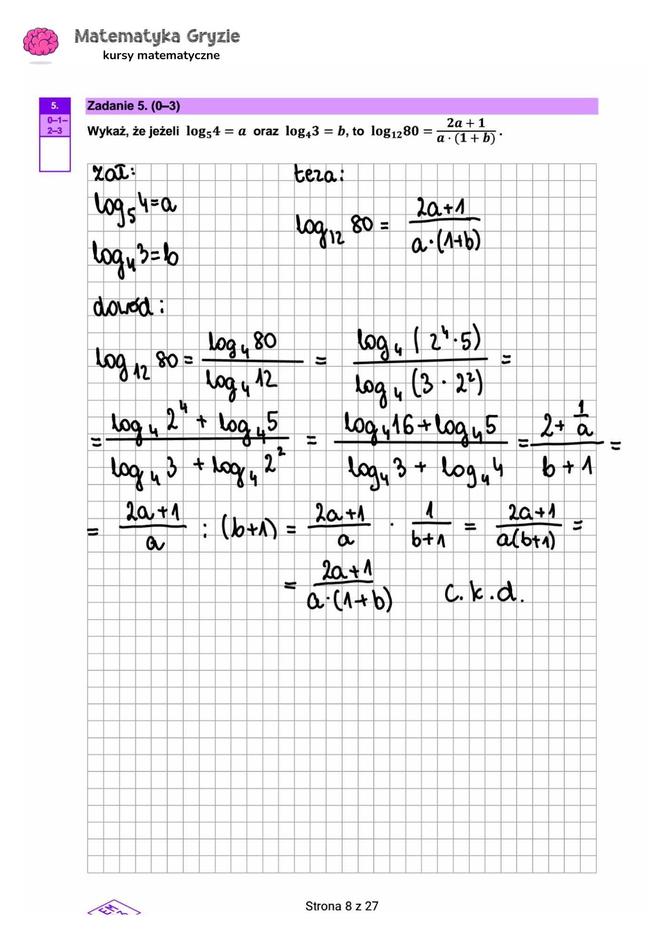 Matematyka Gryzie
kursy matematyczne
5.
0–1–
2–3
Zadanie 5. (0–3)
Wykaż, że jeżeli log₅4 = a oraz log₄3 = b, to log₁₂80 = (2a + 1)/(a · (1 + b)) .
zał: teza:
log₅4=a
log₁₂80 = (2a+1)/(a·(1+b))
log₄3=b
dowód:
log₁₂80 = (log₄80)/(log₄12) = (log₄(2⁴·5))/(log₄(3·2²)) =
= (log₄2⁴ + log₄5)/(log₄3 + log₄2²) = (log₄16 + log₄5)/(log₄3 + log₄4) = (2 + 1/a)/(b + 1) =
= (2a+1)/a : (b+1) = (2a+1)/a · 1/(b+1) = (2a+1)/(a(b+1)) =
= (2a+1)/(a·(1+b)) c.k.d.
Strona 8 z 27